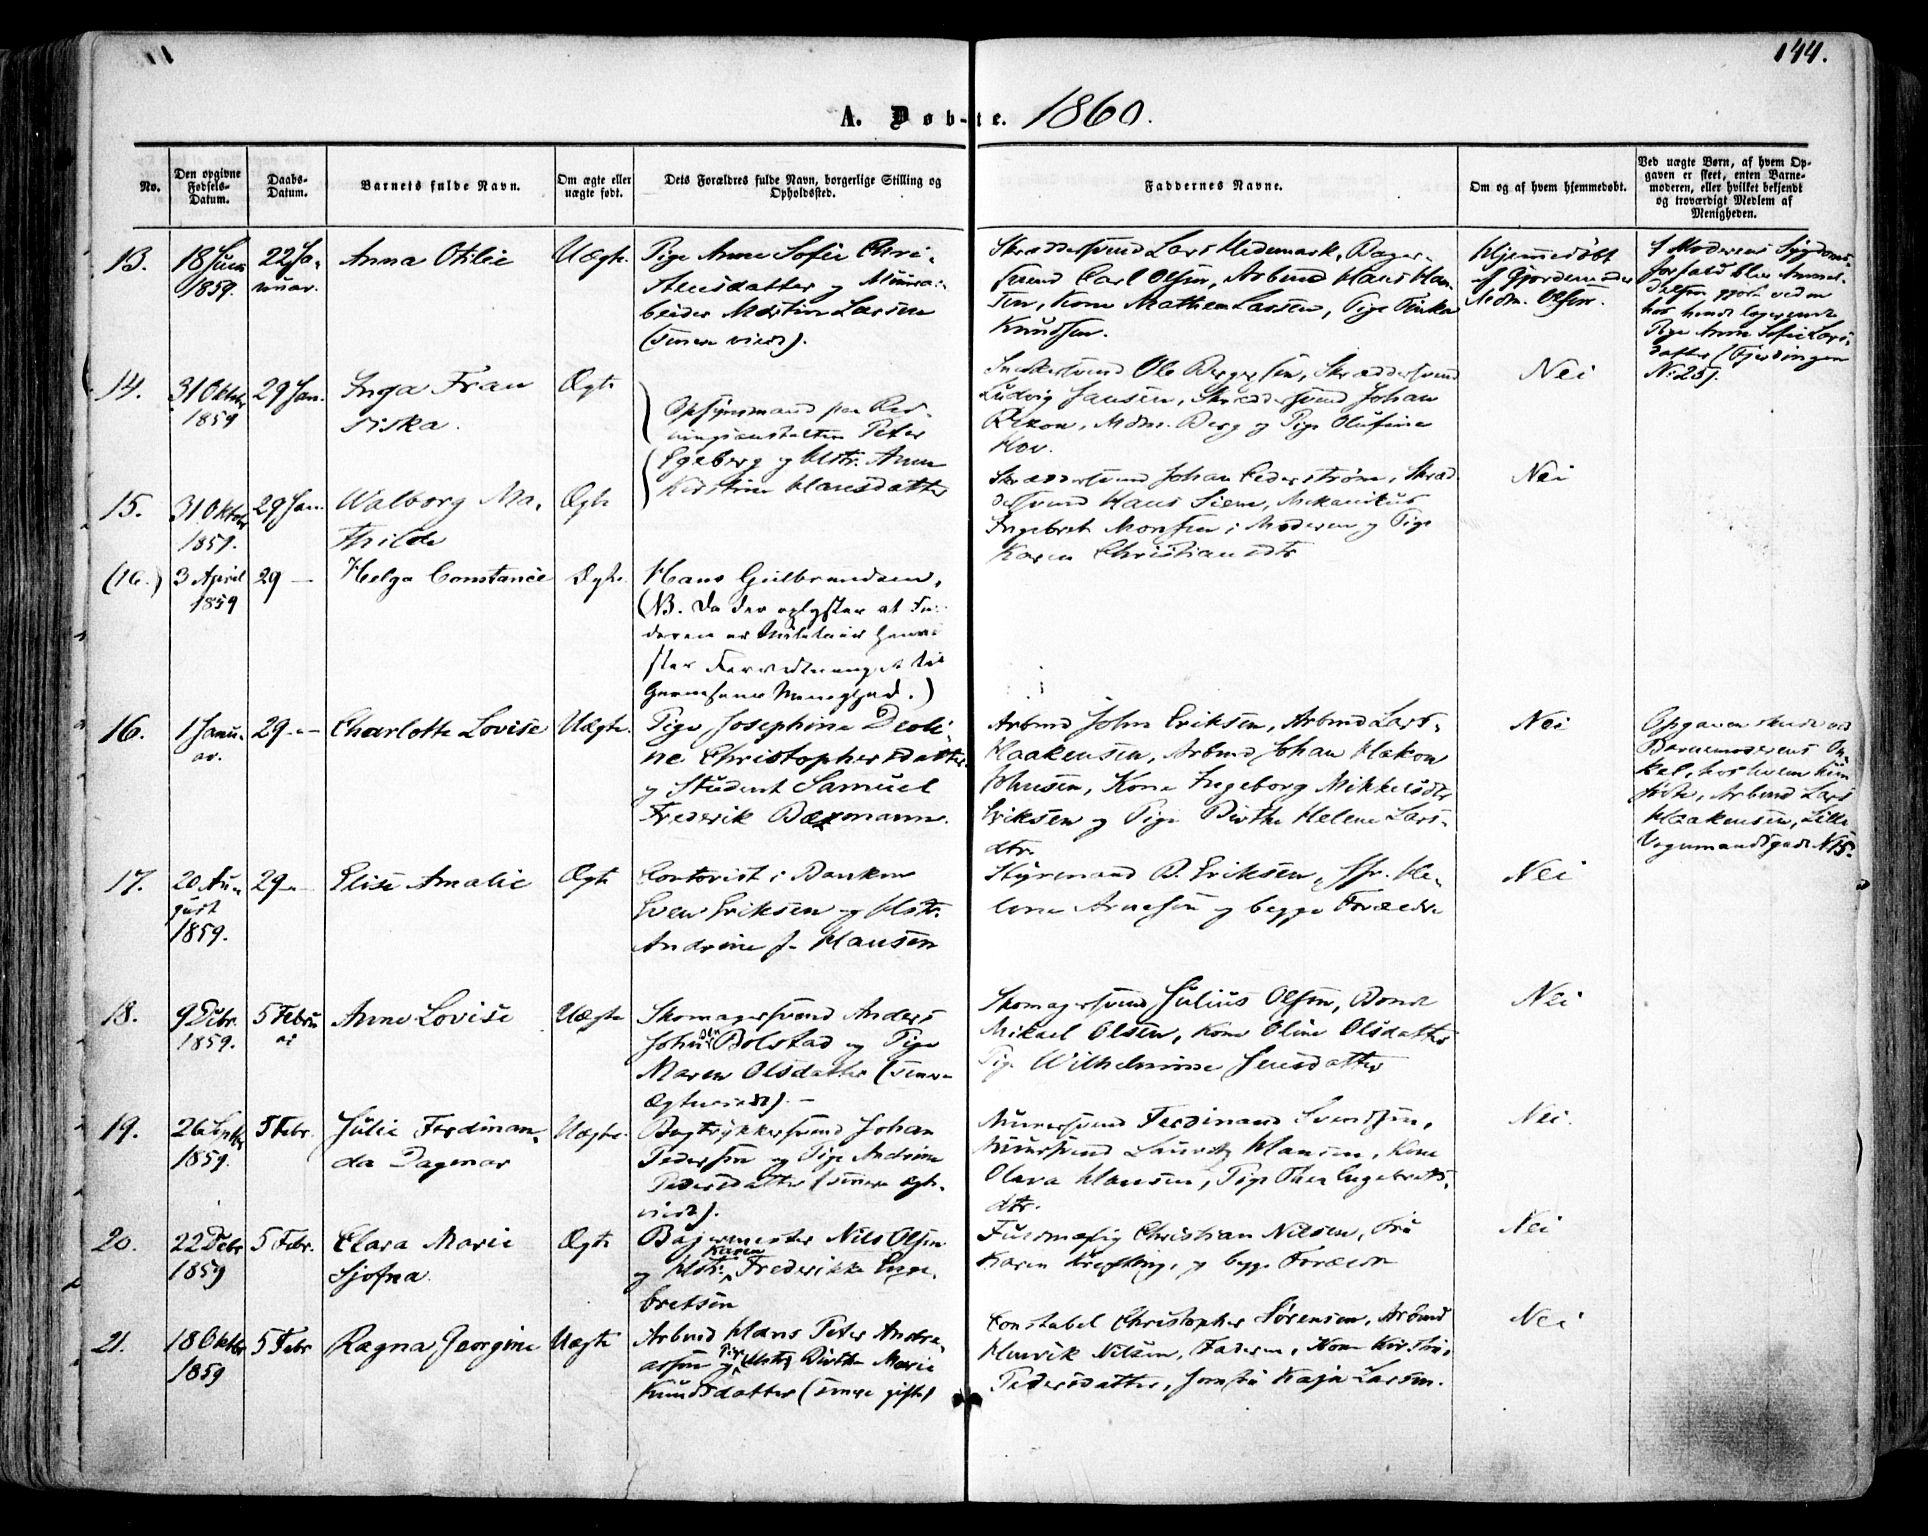 144.
A. Døbte. 1860.
No.
Den opgivne Fødsels-Datum.
Daabs-Datum.
Barnets fulde Navn.
Om ægte eller uægte født.
Dets Forældres fulde Navn, borgerlige Stilling og Opholdssted.
Faddernes Navne.
Om og af hvem hjemmedøbt.
Ved uægte Børn, af hvem Opgaven er skeet, enten Barnemoderen, eller hvilket bekjendt og troværdigt Medlem af Menigheden.
13.
18 Juni
1859.
22 Ja-
nuar.
Anna Otilie
Uægte.
Pige Anne Sofie Chri-
stensdatter og Murar-
beider Martin Larsen
(senere viede).
Skræddersvend Lars Hedemark, Bager-
svend Carl Olsen, Arbmd Hans Han-
sen, Kone Mathea Larsen, Pige
Knudsen.
Hjemmedøbt
af Gjordemoder
Mdm. Olsen.
I Moderens Sygdoms-
forfald blev Anmel-
delsen gjort ved en
hos hende logerende
Pige Anne Sofie Lars-
datter (Fjerdingen
No 25).
14.
31 Oktobr
1859
29 Jan.
Inga Fran
siska.
Ægte
Opsynsmand paa Red-
ningsanstalten Peter
Egeberg og Hstr. Anne
Kirstine Hansdatter
Snedkersvend Ole Bergersen, Skræddersvend
Ludvig Jansen, Skræddersvend Johan
Mdm. Berg og Pige Olufine
Hov.
Nei
15.
31 Oktobr
1859.
29 Jan.
Walborg Ma-
thilde
Ægte
Skræddersvend Johan Cederstrøm, Skræd-
dersvend Hans Siem, Mekanikus
Ingebret Monsen, Moderen og Pige
Karen Christiansdtr
Nei
(16.)
3 April
1859
29 —
Helga Constance
Ægte.
Hans Gulbrandsen,
(NB. Da der oplystes at Fa-
deren er Militair
Forretninget til
Garnisons Menighed.)
16.
1 Janu-
ar.
29 —
Charlotte Lovise
Uægte.
Pige Josephine Deoli-
ne Christophersdatter
og Student Samuel
Frederik Bæxmann.
Arbmd John Eriksen, Arbmd Lars
Haakensen, Arbmd Johan Hakon
Johnsen, Kone Ingeborg Mikkelsdtr
Eriksen og Pige Birthe Helene Lars-
dtr.
Nei
Opgaven skede ved
Barnemoderens On-
kel, hos hvem hun
fødte, Arbmd Lars
Haakensen, Lille
Vognmandsgade N 15.
17.
20 Au-
gust
1859.
29 —
Elise Amalie
Ægte
Contorist i Banken
Even Eriksen og Hstr.
Andrine f. Hansen
Styrmand B. Eriksen, Jfr. He-
lene Arnesen og begge Forældre
Nei
18.
9 Debr.
1859.
5 Febru
ar
Anne Lovise
Uægte
Skomagersvend Anders
Johnsen Bolstad og Pige
Maren Olsdatter (senere
Ægteviede). —
Skomagersvend Julius Olsen, Bonde
Mikael Olsen, Kone Oline Olsdatter
Pige Wilhelmine Jensdatter
Nei
19.
26 Septbr
1859.
5 Febr.
Julie Ferdinan-
da Dagmar
Uægte.
Bogtrykkersvend Johan
Pedersen og Pige Andrine
Pedersdatter (senere ægte-
viede).
Murersvend Ferdinand Svendsen,
Murersvend Lauritz Hansen, Kone
Olava Hansen, Pige Thea Engebrets-
dtr.
Nei.
20.
22 Debr
1859
5 Febr.
Clara Marie
Sjofna.
Ægte
Bagermester Nils Olsen
og Hstr. Karen Frederikke Enge-
bretsen
Fuldmægtig Christian Nilsen, Fru
Karen Krefting, og begge Forældre
Nei
21.
18 Oktbr
1859
5 Febr
Ragna Georgine
Uægte
Arbmd Hans Peter Andre-
assen og Pige Birthe Marie
Knudsdatter (senere gifte)
Constabel Christopher Sørensen, Arbmd
Henrik Nilsen, Faderen, Kone Kirstine
Pedersdatter, Jomfru Kaja Larsen.
Nei